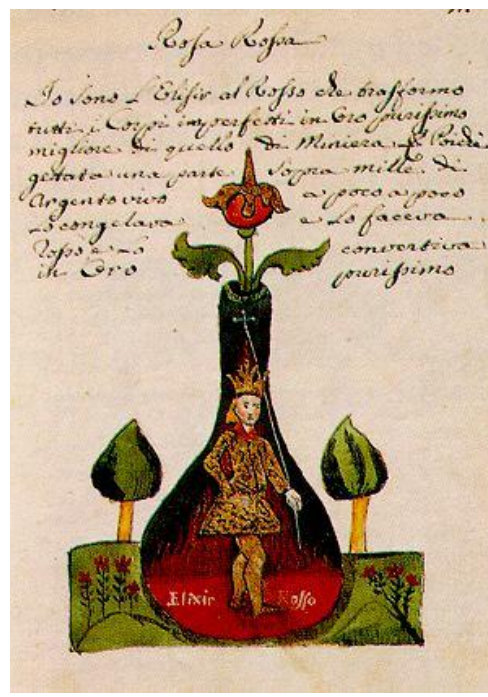 Rosa Rossa
Io sono L'Elisir al Rosso che trasformo
tutti i Corpi imperfetti in Oro purissimo
migliore di quello di Miniera
gettata una parte sopra mille di
Argento vivo a poco a poco
Lo congelava e Lo faceva
Rosso e Lo convertiva
in Oro purissimo
Elixir Rosso